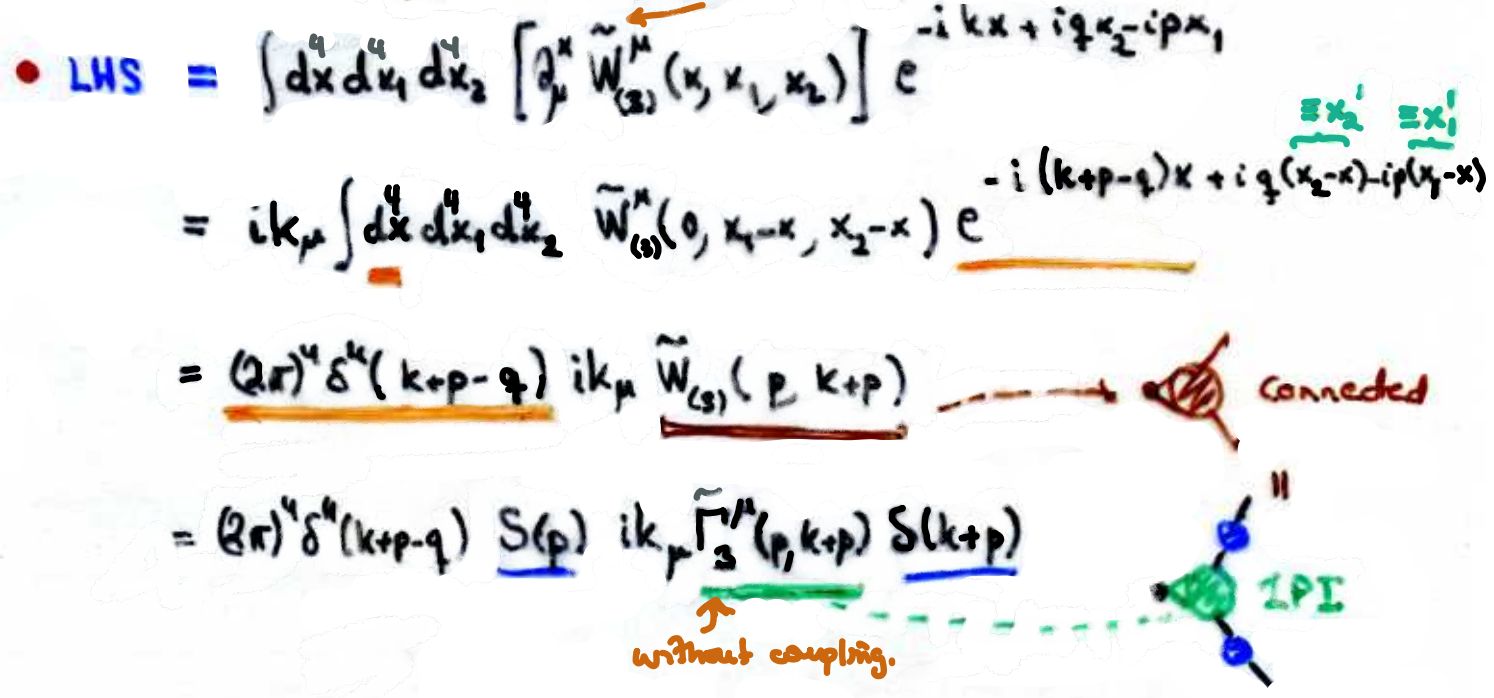 • LHS = ∫ d⁴x d⁴x₁ d⁴x₂ [∂_μ^x W̃^μ_(3)(x, x₁, x₂)] e^{-ikx + iqx₂ - ipx₁}
≡x₂' ≡x₁'
= ik_μ ∫ d⁴x d⁴x₁ d⁴x₂ W̃^μ_(3)(0, x₁-x, x₂-x) e^{-i(k+p-q)x + iq(x₂-x) - ip(x₁-x)}
= (2π)⁴ δ⁴(k+p-q) ik_μ W̃_(3)(p, k+p) connected
= (2π)⁴ δ⁴(k+p-q) S(p) ik_μ Γ̃₃^μ(p, k+p) S(k+p) 1PI
without coupling.